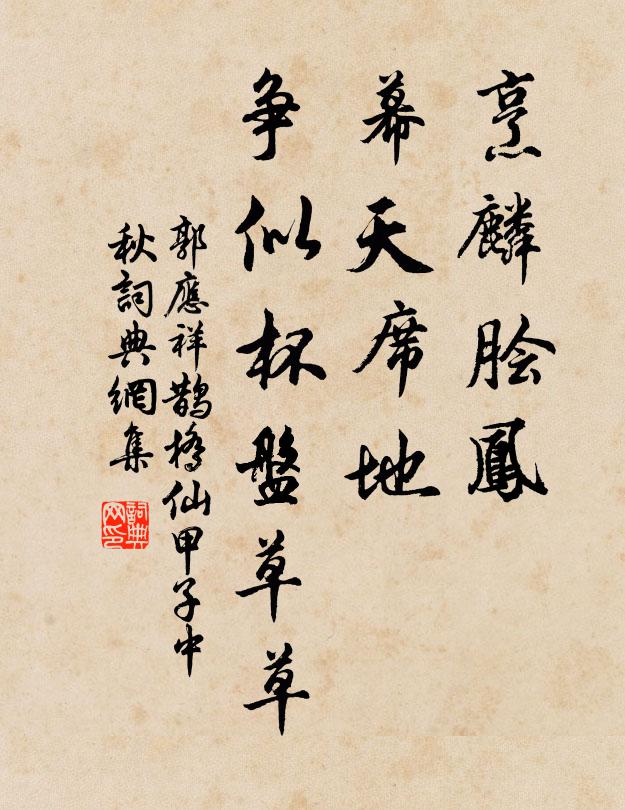 烹麟脍鳳
幕天席地
争似杯盤草草
郭應祥鵲橋仙甲子中
秋詞典網集
詞典
网印